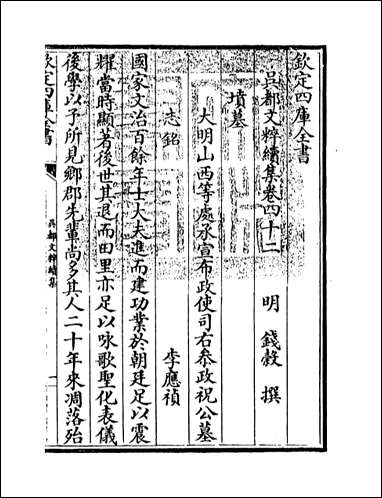 欽定四庫全書
吳都文粹續集卷四十二
明 錢榖 撰
墳墓
大明山西等處承宣布政使司右叅政祝公墓
志銘 李應禎
國家文治百餘年士大夫進而建功業於朝廷足以震
耀當時顯著後世其退而田里亦足以咏歌聖化表儀
後學以予所見鄉郡先輩尚多其人二十年來凋落殆
欽定四庫全書
吳都文粹續集
一